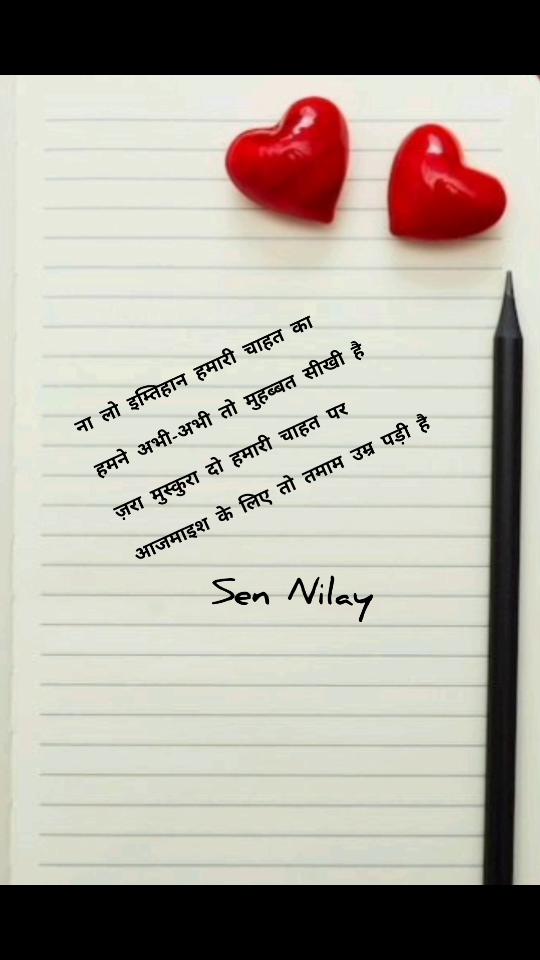 ना लो इम्तिहान हमारी चाहत का
हमने अभी-अभी तो मुहब्बत सीखी है
ज़रा मुस्कुरा दो हमारी चाहत पर
आजमाइश के लिए तो तमाम उम्र पड़ी है
Sen Nilay